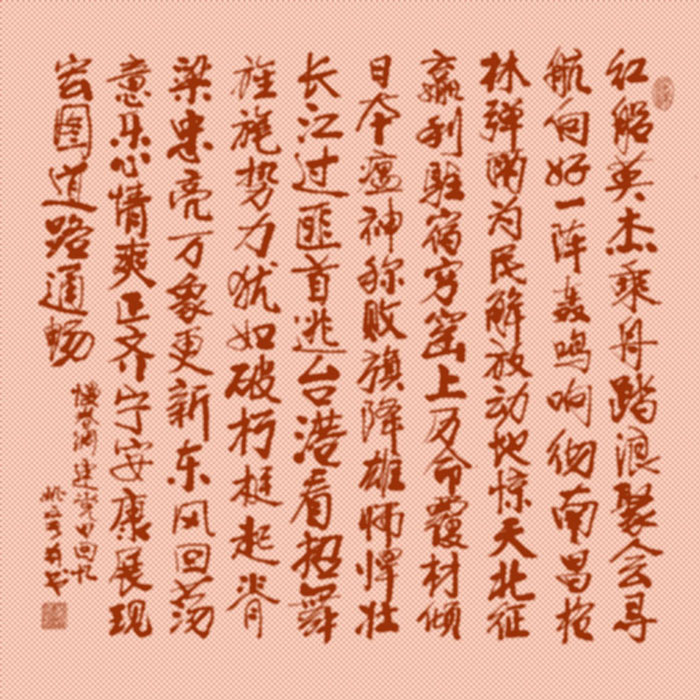 红船英杰乘舟踏浪聚会寻
航向好一阵轰鸣响彻南昌枪
林弹雨为民解放动地惊天北征
赢利驻宿穷窑上命覆材倾
日本瘟神称败旗降雄师悍壮
长江过匪首逃台港看招舞
旌势力犹如破朽挺起脊
梁忠亮万象更新东风回荡
意乐心情爽匡齐宁安康展现
宏图道路通畅
建党回忆